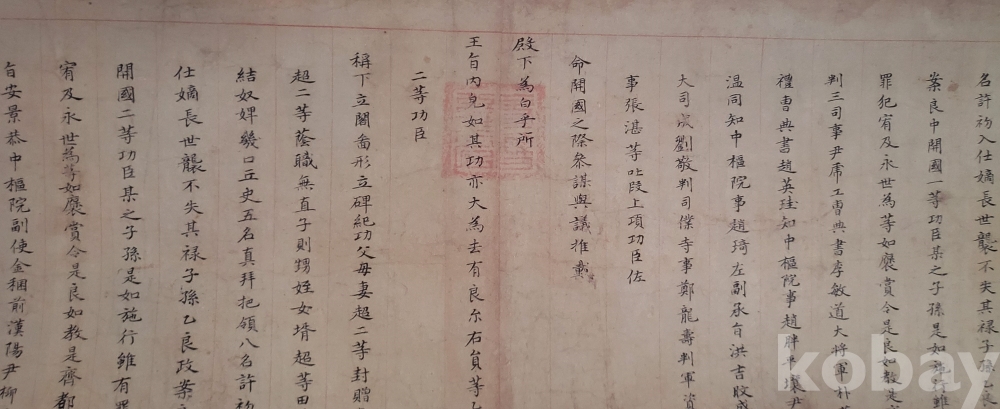 名許初入仕嫡長世襲不失其祿子孫乙良
案良中開國一等功臣某之子孫是如施行雖
罪犯宥及永世為等如褒賞令是良如教是
判三司事尹虎工曹典書李敏道大將軍朴
禮曹典書趙英珪知中樞院事趙胖平壤尹
温同知中樞院事趙琦左副承旨洪吉旼成
大司成劉敬判司僕寺事鄭龍壽判軍資
事張湛等叱段上項功臣佐
命開國之際參謀與議推戴
殿下為白乎所
王旨內皃如其功亦大為去有良尔右員等乙
二等功臣
稱下立閣畵形立碑紀功父母妻超二等封贈
超二等蔭職無直子則甥姪女壻超等田
結奴婢幾口丘史五名真拜把領八名許初
仕嫡長世襲不失其祿子孫乙良政案
開國二等功臣某之子孫是如施行雖有罪
宥及永世為等如褒賞令是良如教是齊都
旨安景恭中樞院副使金稛前漢陽尹柳
kobay